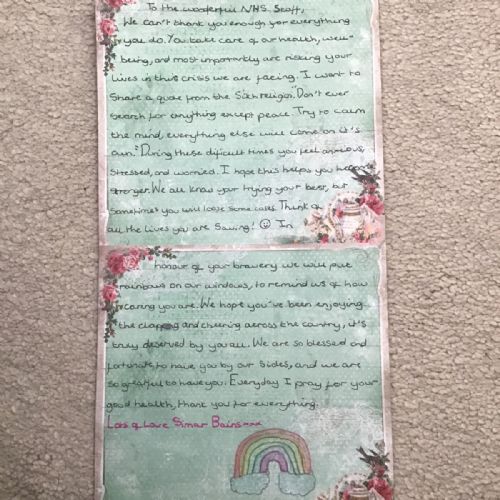 To the wonderful NHS Staff,
We can't thank you enough for everything
you do. You take care of our health, well-
being, and most importantly are risking your
lives in this crisis we are facing. I want to
share a quote from the Sikh religion "Don't ever
search for anything except peace. Try to calm
the mind, everything else will come on it's
own." During these difficult times you feel anxious,
stressed, and worried. I hope this helps you
stronger. We all know your trying your best, but
sometimes you will loose some cases. Think of
all the lives you are saving! ☺ In
honour of your bravery we will put
rainbows on our windows, to remind us of how
caring you are. We hope you've been enjoying
the clapping and cheering across the country, it's
truly deserved by you all. We are so blessed and
fortunate, to have you by our sides, and we are
so grateful to have you. Everyday I pray for your
good health, thank you for everything.
Lots of Love Simar Bains xxx